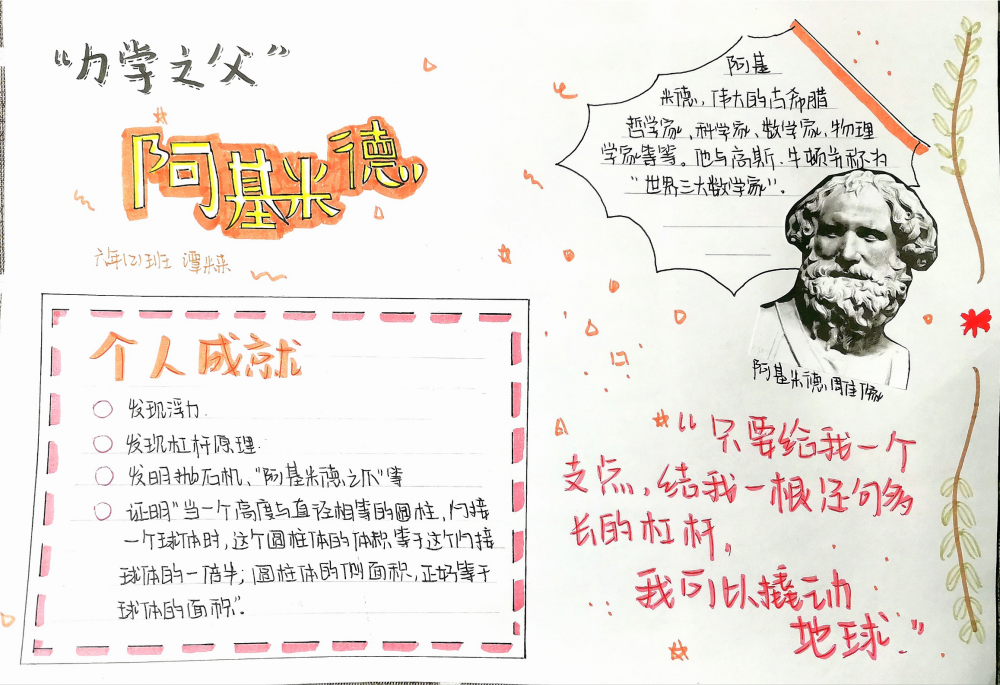 “力学之父”
阿基米德
六年(2)班 谭米来
阿基
米德，伟大的古希腊
哲学家、科学家、数学家、物理
学家等等。他与高斯、牛顿并称为
“世界三大数学家”。
个人成就
发现浮力.
发现杠杆原理.
发明抛石机、“阿基米德之爪”等
证明“当一个高度与直径相等的圆柱，内接
一个球体时，这个圆柱体的体积等于这个内接
球体的一倍半；圆柱体的侧面积，正好等于
球体的面积”。
“只要给我一个
支点，给我一根足够
长的杠杆，
我可以撬动
地球.”